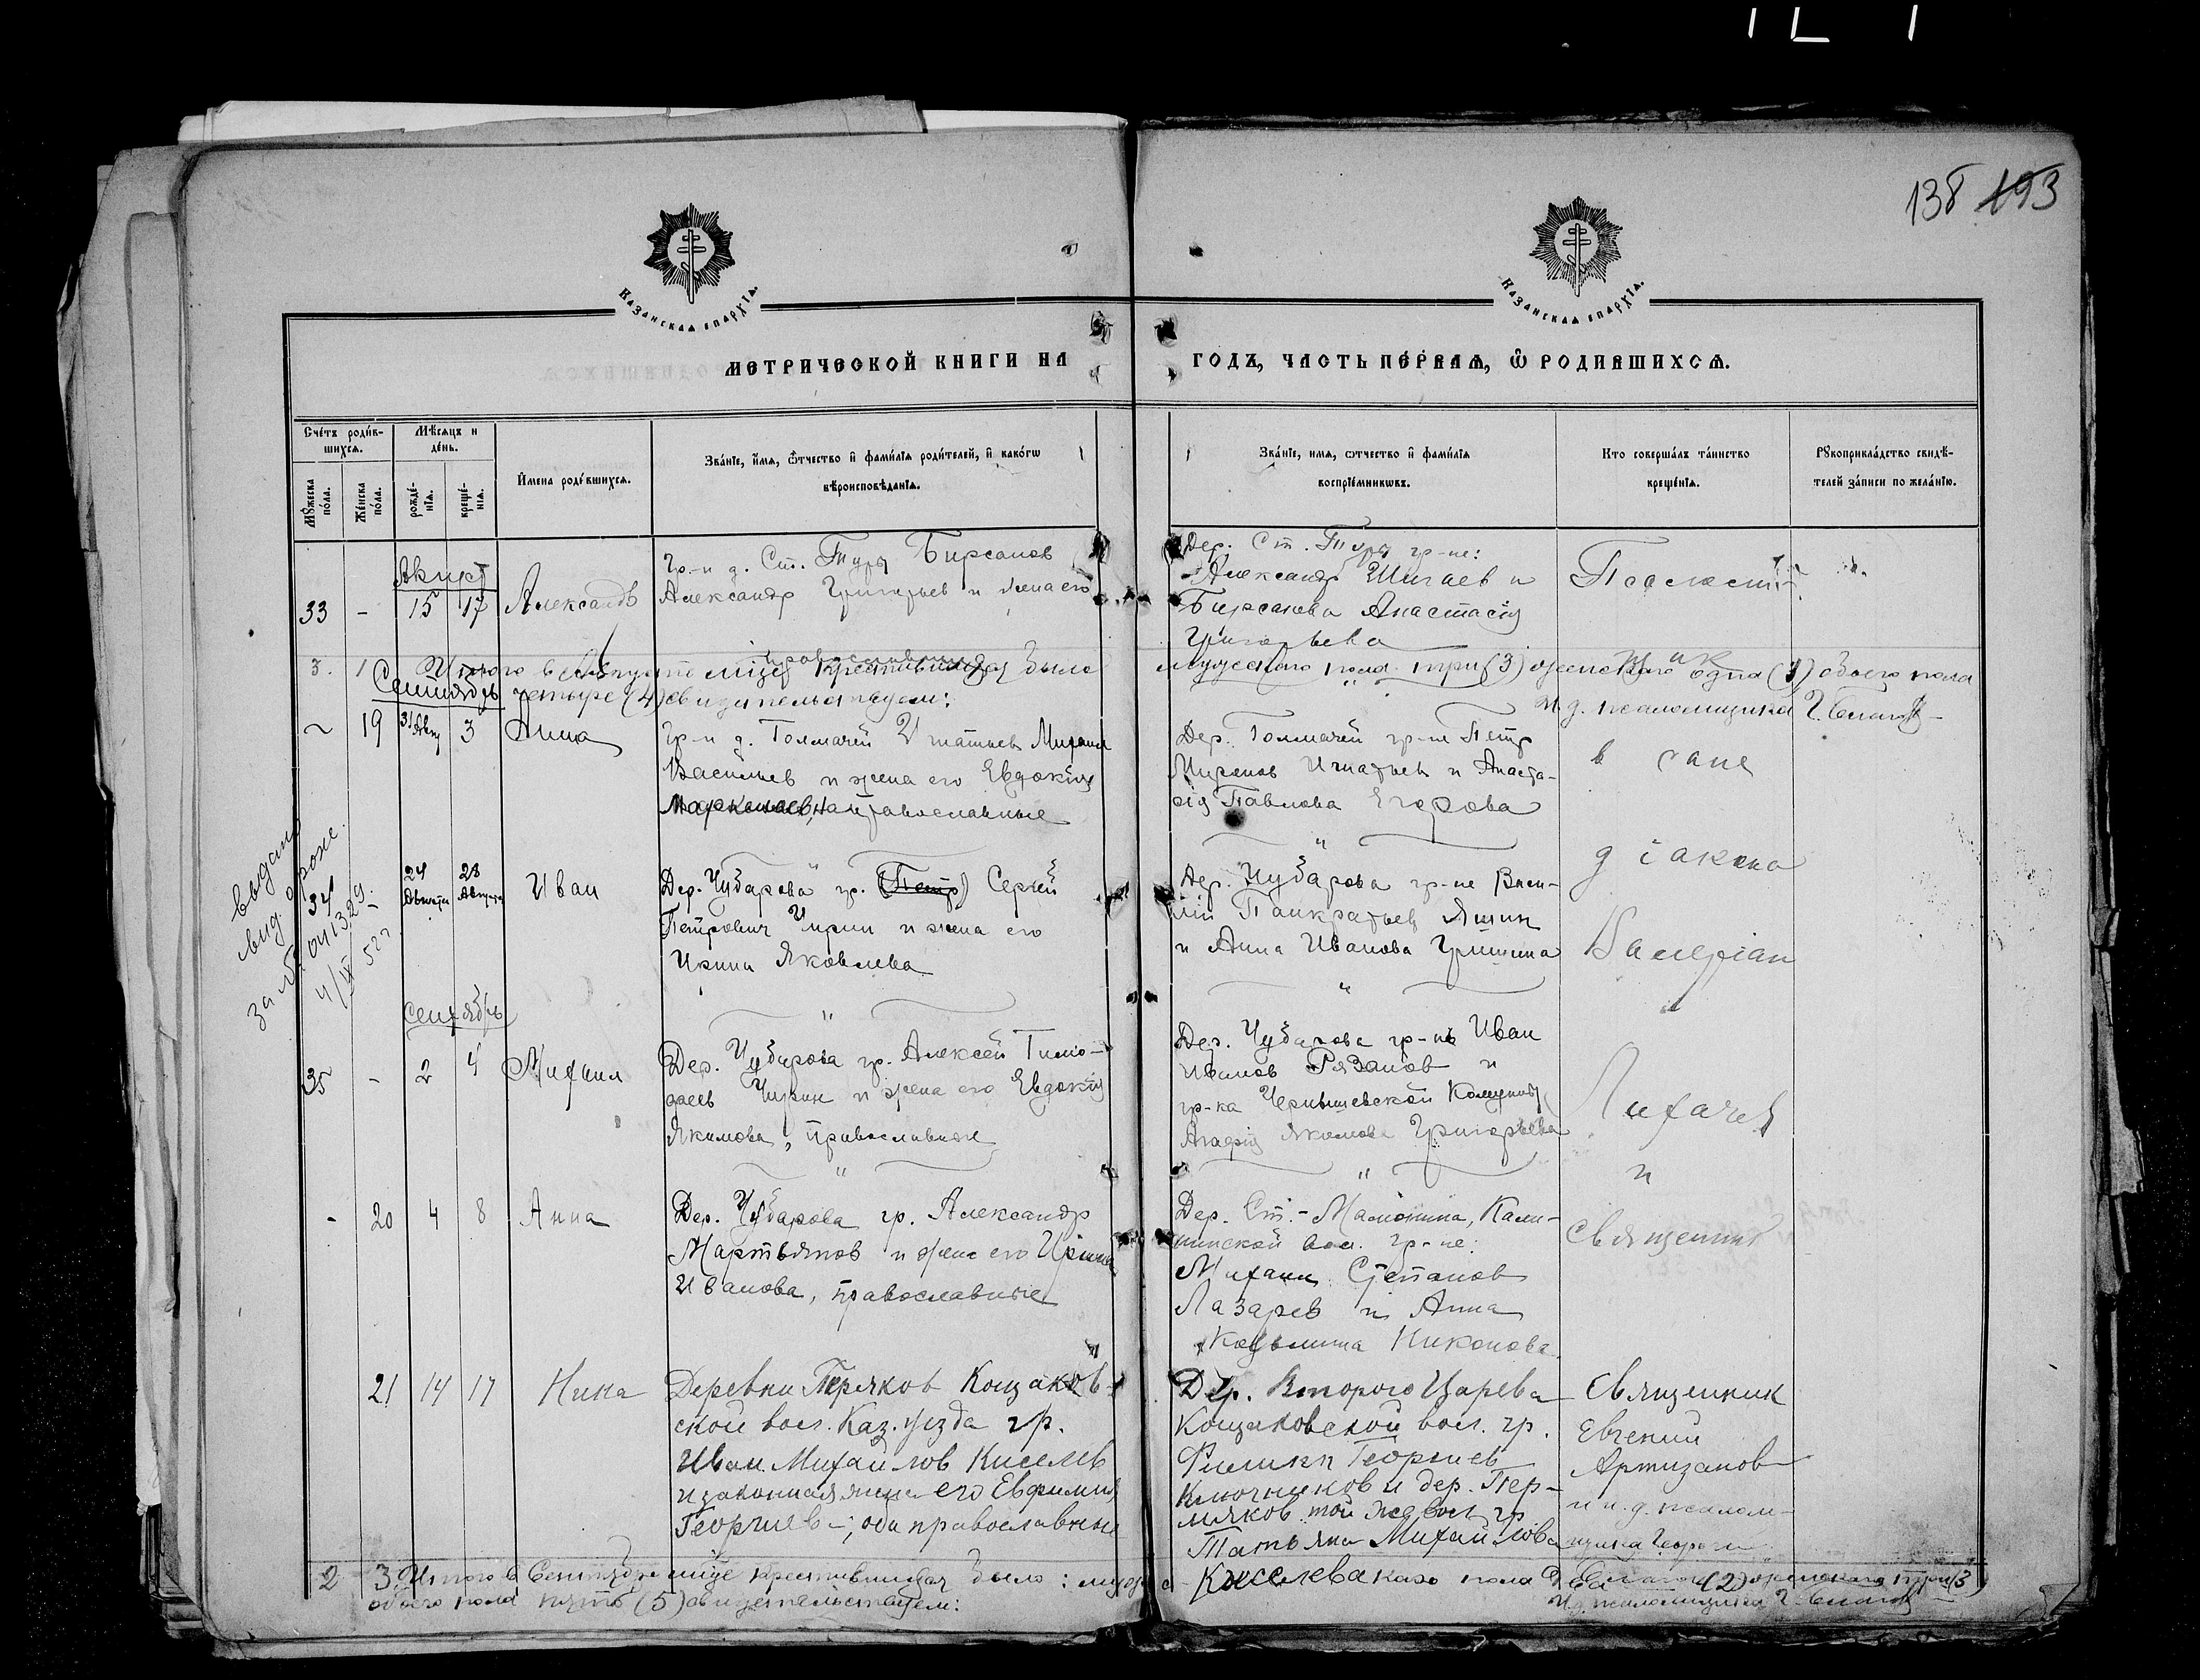 138 193
Казанская епархїя.
Казанская епархїя.
МЕТРИЧЕСКОЙ КНИГИ НА
ГОДЪ, ЧАСТЬ ПЕ́РВАЯ, Ѡ РОДИВШИХСЯ.
Сче́тъ роди́вшихся.
Му́жеска по́ла.
Же́нска по́ла.
Мѣ́сяцъ и де́нь.
рожде́нїя.
креще́нїя.
И҆мена роди́вшихся.
Зва́нїе, и҆́мя, ѻ҆́тчество и҆ фами́лїя роди́телей, и҆ како́гѡ
вѣроисповѣ́данїя.
Зва́нїе, имя, ѻтчество и҆ фами́лїя
воспрїе́мникѡвъ.
Кто соверша́лъ та́инство
креще́нїя.
Рꙋкоприкла́дство свидѣ́-
телей за́писи по жела́нїю.
Август
33 - 15 17 Александр
Гр-н д. Ст. Туры Бирсанов
Александр Григорьев и жена его
православные
Дер. Ст. Туры гр-не:
Александр Шигаев и
Бирсанова Анастасия
Григорьева
3. 1 Итого в Августе м-це крестившихся было
мужского пола три (3) женского одна (1) обоего пола
четыре (4) свидетельствуем:
И.д. псаломщика Г.
Сентябрь
19 31 Авг 3 Анна
Гр-н д. Толмачей Игнатьев Михаил
Васильев и жена его Евдокия
православные
Дер. Толмачей гр-не Петр
Миронов Игнатьев и Анаста-
сия Павлова Егорова
в сане
диакона
Валериан
Лихачев
и
священник
выдано
свид. о рож.
за №
34 24 Августа 28 Августа Иван
Дер. Чубарова гр. (Петр) Сергей
Петрович Чирин и жена его
Ирина Яковлева
Дер. Чубарова гр-не Васи-
лий Панкратьев Яшин
и Анна Иванова Гришина
сентябрь
35 - 2 4 Михаил
Дер. Чубарова гр. Алексей Тимо-
феев Чирин и жена его Евдокия
Якимова, православные
Дер. Чубарова гр-нъ Иван
Иванов Рязанов и
гр-ка Чернышевской Коммуны
Агафия Якимова Григорьева
- 20 4 8 Анна
Дер. Чубарова гр. Александр
Мартьянов и жена его Ирина
Иванова, православные
Дер. Ст.-Мамонина, Кали-
нинской вол. гр-не:
Михаил Степанов
Лазарев и Анна
Козьмина Никонова
21 14 17 Нина
Деревни Пермяков Кощаков-
ской вол. Каз. уезда гр.
Иван Михайлов Киселев
и законная жена его Евфимия
Георгиева; оба православные
Дер. Второго Царева
Кощаковской вол. гр.
Филипп Георгиев
Ключников и дер. Пер-
мяков той же вол. гр.
Татьяна Михайлова
Киселева
Священник
Евгений
Артизанов
и и.д. псалом-
щика Георги
2 3 Итого в Сентябре м-це крестившихся было: мужс-
каго пола два (2) женского три (3)
обоего пола пять (5) свидетельствуем:
И.д. псаломщика Г.